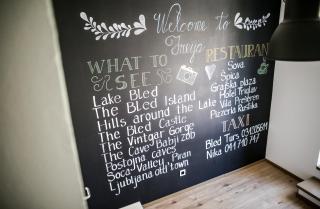 Welcome to
Freya
WHAT TO
SEE
Lake Bled
The Bled Island
Hills around the Lake
The Bled Castle
The Vintgar Gorge
The Cave Babji zob
Postojna caves
Soca Valley, Piran
Ljubljana old town
RESTAURANT
Sova
Špica
Grajska plaža
Hotel Triglav
Vila Prešeren
Pizzeria Rustika
TAXI
Bled Turs
Nika 041 740 747